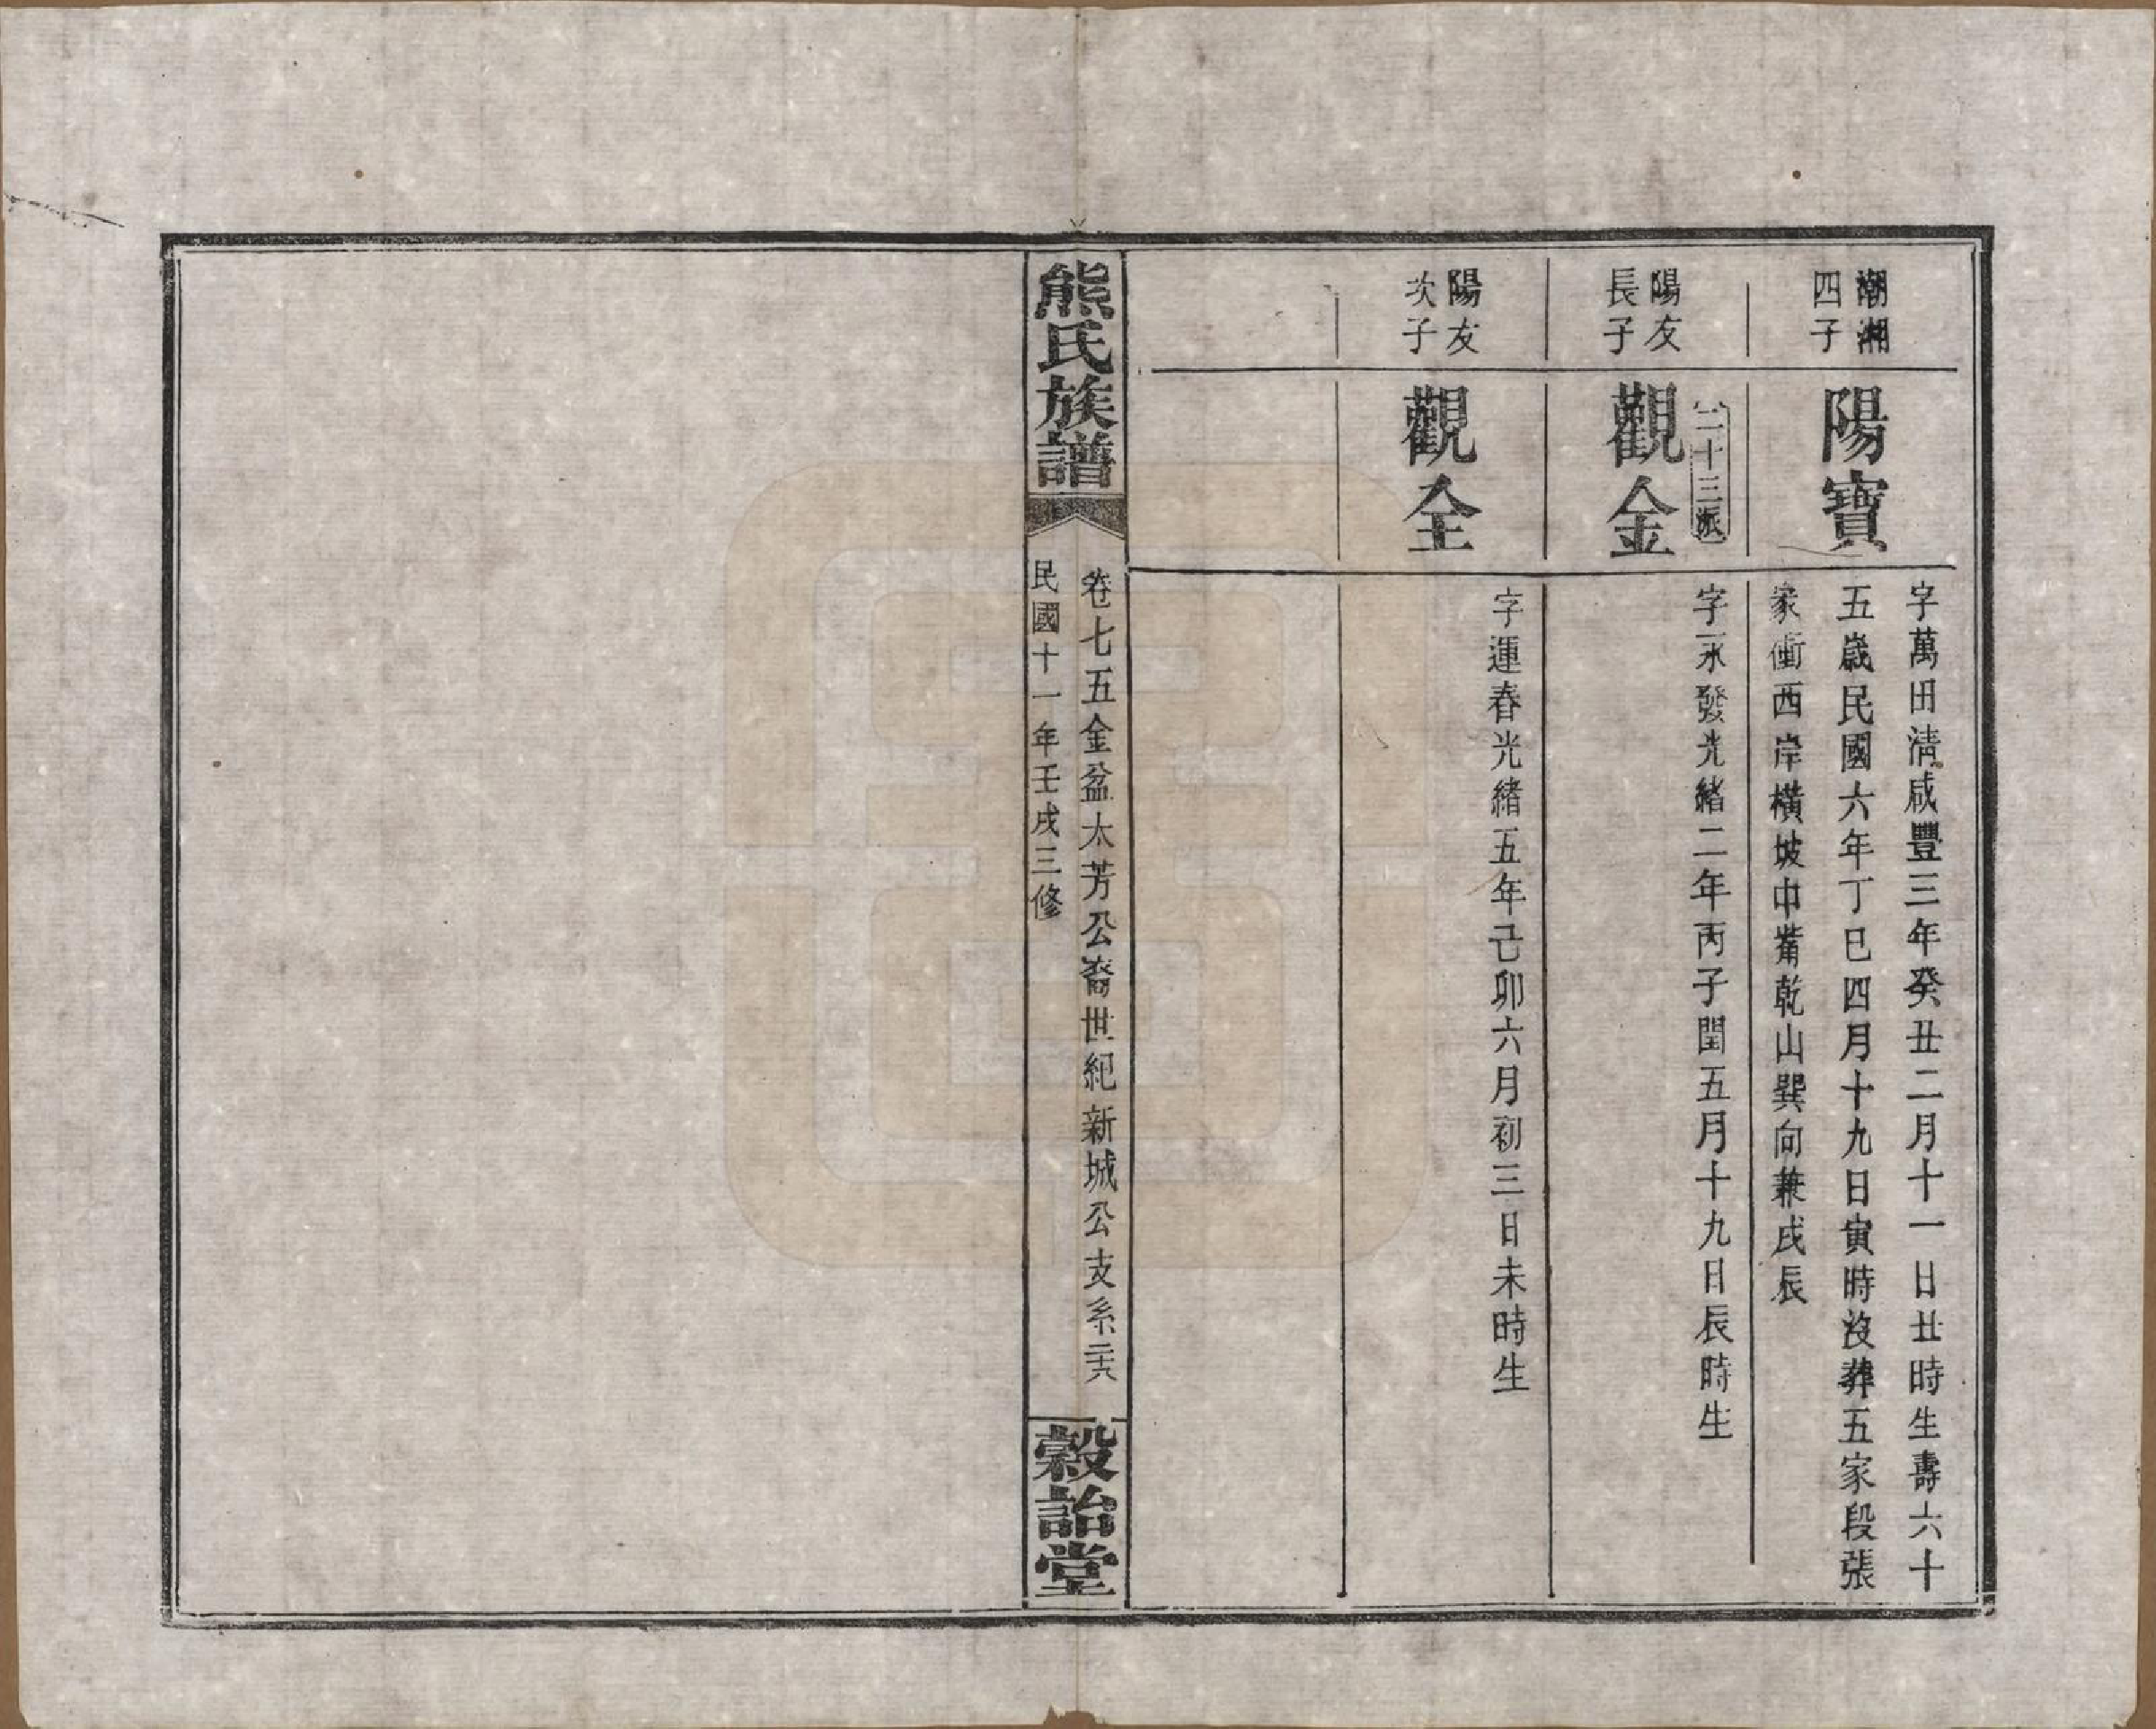 潮湘
四子
陽寶
字萬田清咸豐三年癸丑二月十一日丑時生壽六十
五歲民國六年丁巳四月十九日寅時沒葬五家段張
家衝西岸橫坡中嘴乾山巽向兼戌辰
二十三派
陽友
長子
觀金
字永發光緒二年丙子閏五月十九日辰時生
陽友
次子
觀全
字運春光緒五年己卯六月初三日未時生
熊氏族譜
卷七五金盆太芳公裔世紀新城公支系二六
民國十一年壬戌三修
穀詒堂